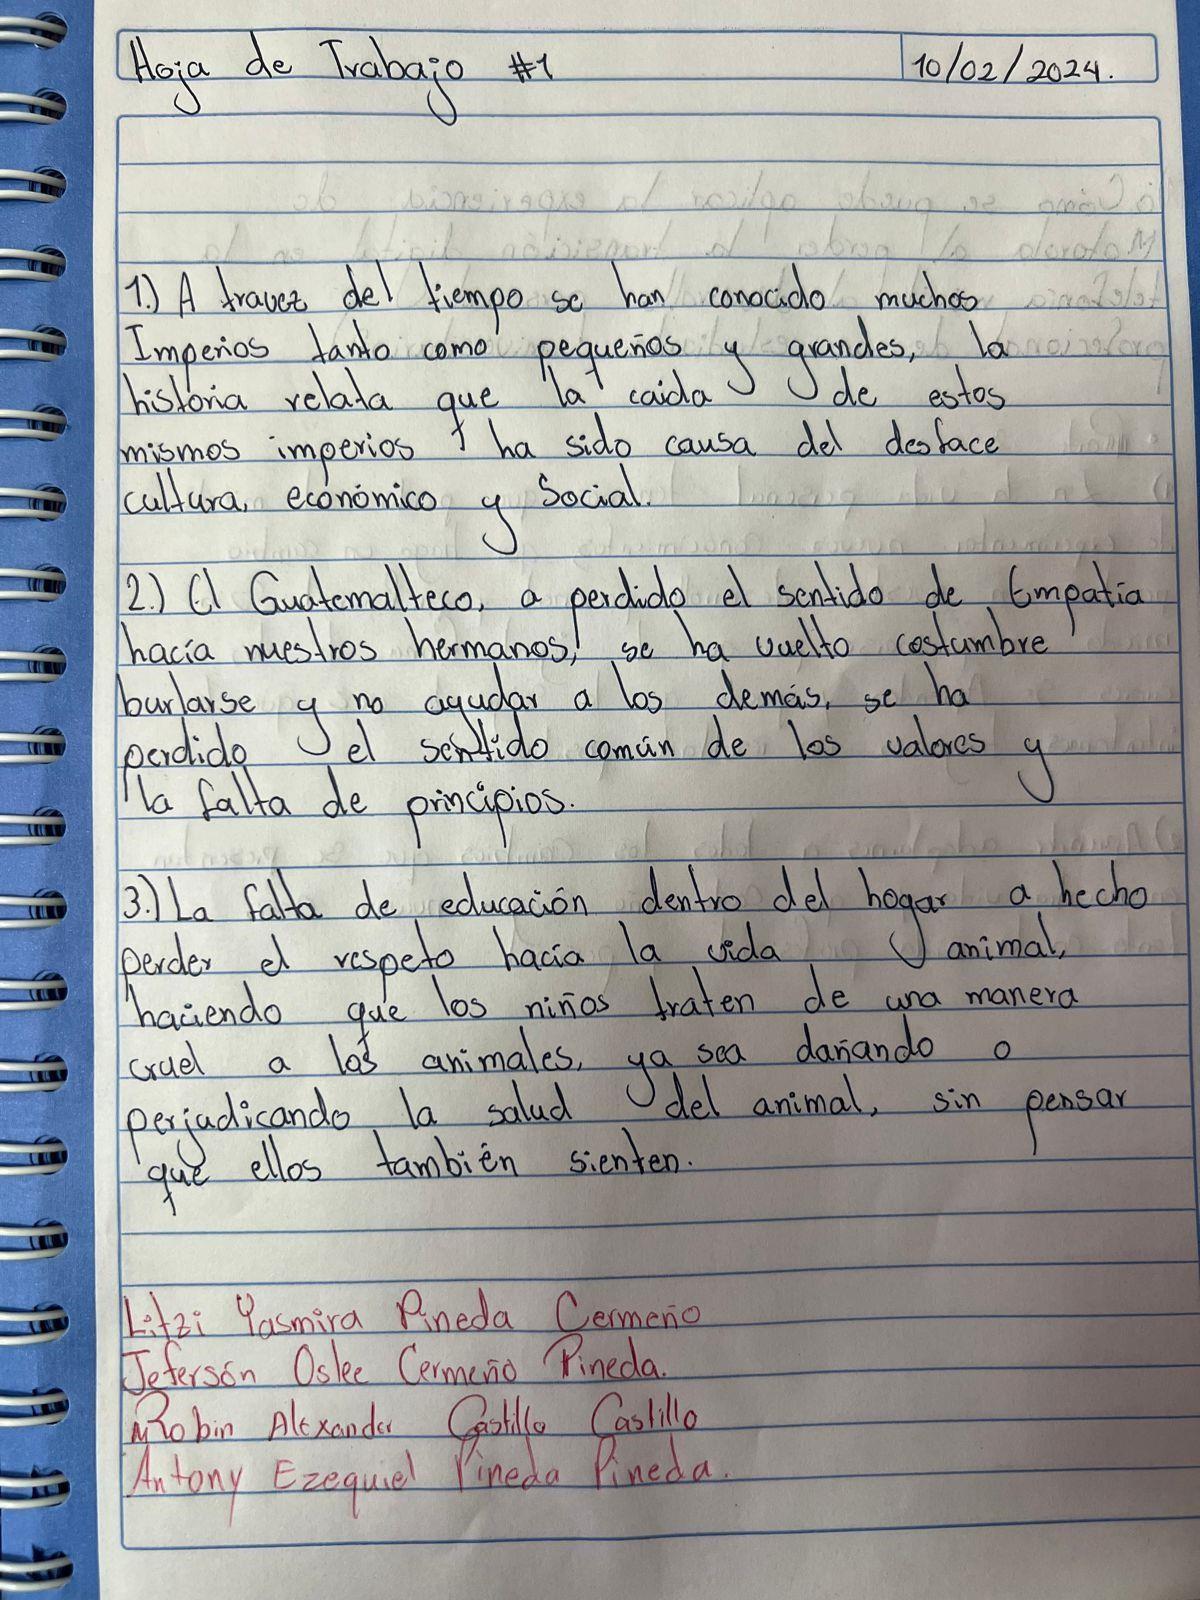 Hoja de Trabajo #1
10/02/2024.
1.) A travez del tiempo se han conocido muchos
Imperios tanto como pequeños y grandes, la
historia relata que la caida de estos
mismos imperios ha sido causa del desface
cultura, económico y Social.
2.) El Guatemalteco, a perdido el sentido de Empatía
hacía nuestros hermanos, se ha vuelto costumbre
burlarse y no ayudar a los demás, se ha
perdido el sentido común de los valores y
la falta de principios.
3.) La falta de educación dentro del hogar a hecho
perder el respeto hacía la vida animal,
haciendo que los niños traten de una manera
cruel a los animales, ya sea dañando o
perjudicando la salud del animal, sin pensar
que ellos también sienten.
Litzi Yasmira Pineda Cermeño
Jefersón Oslee Cermeño Pineda.
Robin Alexander Castillo Castillo
Antony Ezequiel Pineda Pineda.